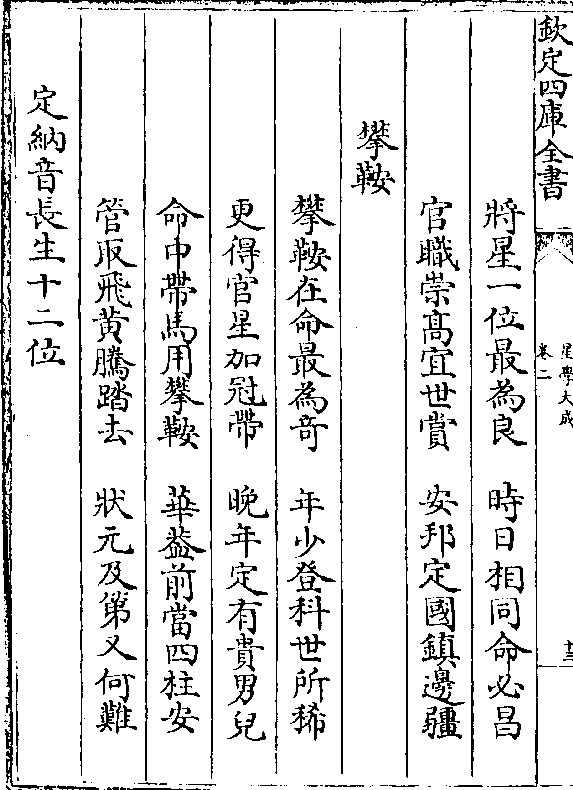 欽定四庫全書
星學大成
卷二
十三
將星一位最為良　時日相同命必昌
官職崇髙宜世賞　安邦定國鎮邊疆
攀鞍
攀鞍在命最為竒　年少登科世所稀
更得官星加冠帶　晩年定有貴男兒
命中帶馬用攀鞍　華葢前當四柱安
管取飛黄騰踏去　狀元及第又何難
定納音長生十二位